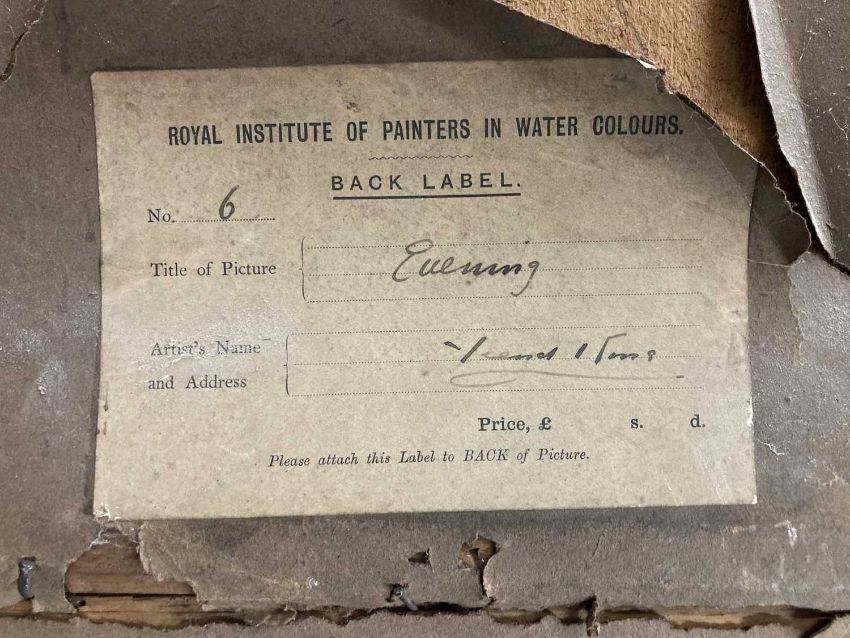 ROYAL INSTITUTE OF PAINTERS IN WATER COLOURS.
BACK LABEL.
No. 6
Title of Picture Evening
Artist's Name
and Address
Price, £ s. d.
Please attach this Label to BACK of Picture.